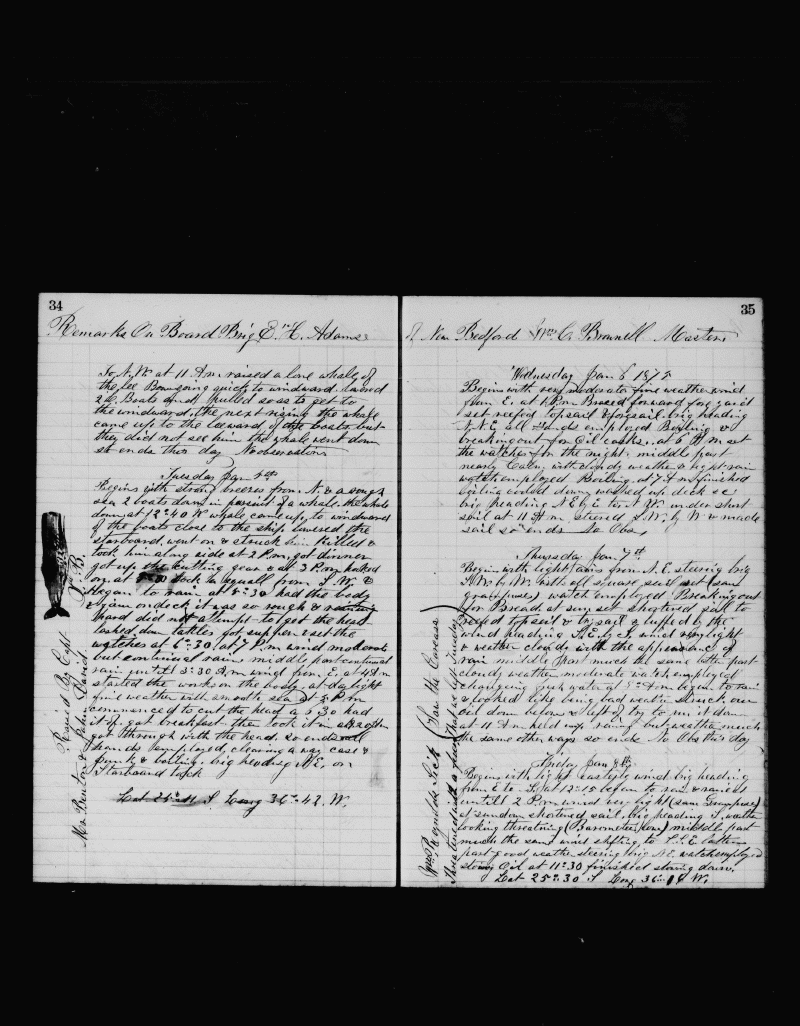 34
Remarks On Board Brig E. H. Adams
to N.W. at 11 A.m. raised a lone whale off
the lee Bow going quick to windward. lowered
2 Boats and pulled so as to get to
the windward. the next rising the whale
came up to the leeward of the boats but
they did not see him the whale went down
so ends this day No observations
Tuesday Jan 5th
Begins with strong breezes from N. & a rough
sea 2 boats down in pursuit of a whale. the whale
down at 12=40 whale came up, to windward
of the boats close to the ship lowered the
starboard, went on & struck him killed &
took him along side at 2 P.m, got dinner
got up the cutting gear & at 3 P.m, hooked
on, at took a squall from S. W. &
began to rain at 5=30 had the body
in on deck it was so rough &
hard did not attempt to get the head
lashed down tables got supper & set the
watches at 6=30, at 7 P.m wind moderate
but continual rain middle part continual
rain until 3=30 A.m wind from E, at 4 A.m
started the work on the body, at daylight
fine weather with smooth sea at 5 A m
commenced to cut the head a 8=30 had
it off. got breakfast then took it in
got through with the head. so ends all
hands employed, clearing away case &
junk & boiling. brig heading N.E, on
Starboard tack
Lat 25=41 S Long 36=42 W.
Raised By Capt
Mr Bunton & John David
35
of New Bedford Wm C. Brownell Master
Wednesday Jan 6 1875
Begins with very moderate fine weather wind
from E. at 1 P.m Braced forward fore yard
set reefed topsail & foresail. brig heading
N.N.E, all hands employed Boiling &
breaking out for oil casks, at 6 P.m set
the watches for the night. middle part
nearly Calm, with cloudy weather & light rain
watch employed Boiling, at 7 A m finished
boiling cooled down, washed up deck &c
brig heading N.E by E to N.W. under short
sail at 11 A.m. steered S.W. by W & made
sail so ends No Obs,
Thursday Jan 7th
Begins with light rains from N. E. steering brig
S.W. by W. with all square sail set (saw
grampuses) watch employed Breaking out
for Bread, at sun set shortened sail to
reefed topsail & try sail & luffed by the
wind heading S. E. by S, wind very light
& weather cloudy with the appearance of
rain middle part much the same latter part
cloudy weather moderate watch employed
changing fresh water at 5 A m began to rain
& looked like being bad weather struck over
at 11 A m held up raining but weather much
the same other ways so ends No Obs this day
Friday Jan 8th
Begins with light easterly wind. brig heading
from E to S, at 12=15 began to rain & rained
untill 2 P.m wind very light (saw Grampuses)
at sundown shortened sail, brig heading S, weather
looking threatning (Barometer low) middle part
much the same wind shifting to S.S.E. latter
part good weather steering brig N.E, watch employed
stowing Oil at 11=30 finished stowing down.
Lat 25=30 S Long 36=18 W.